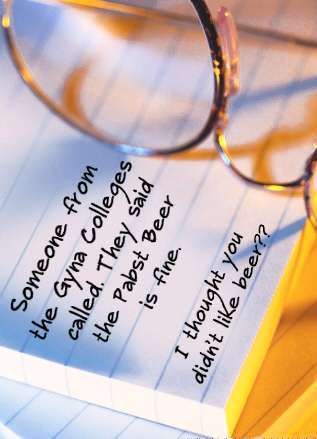 Someone from
the Gyna Colleges
called. They said
the Pabst Beer
is fine.
I thought you
didn't like beer??